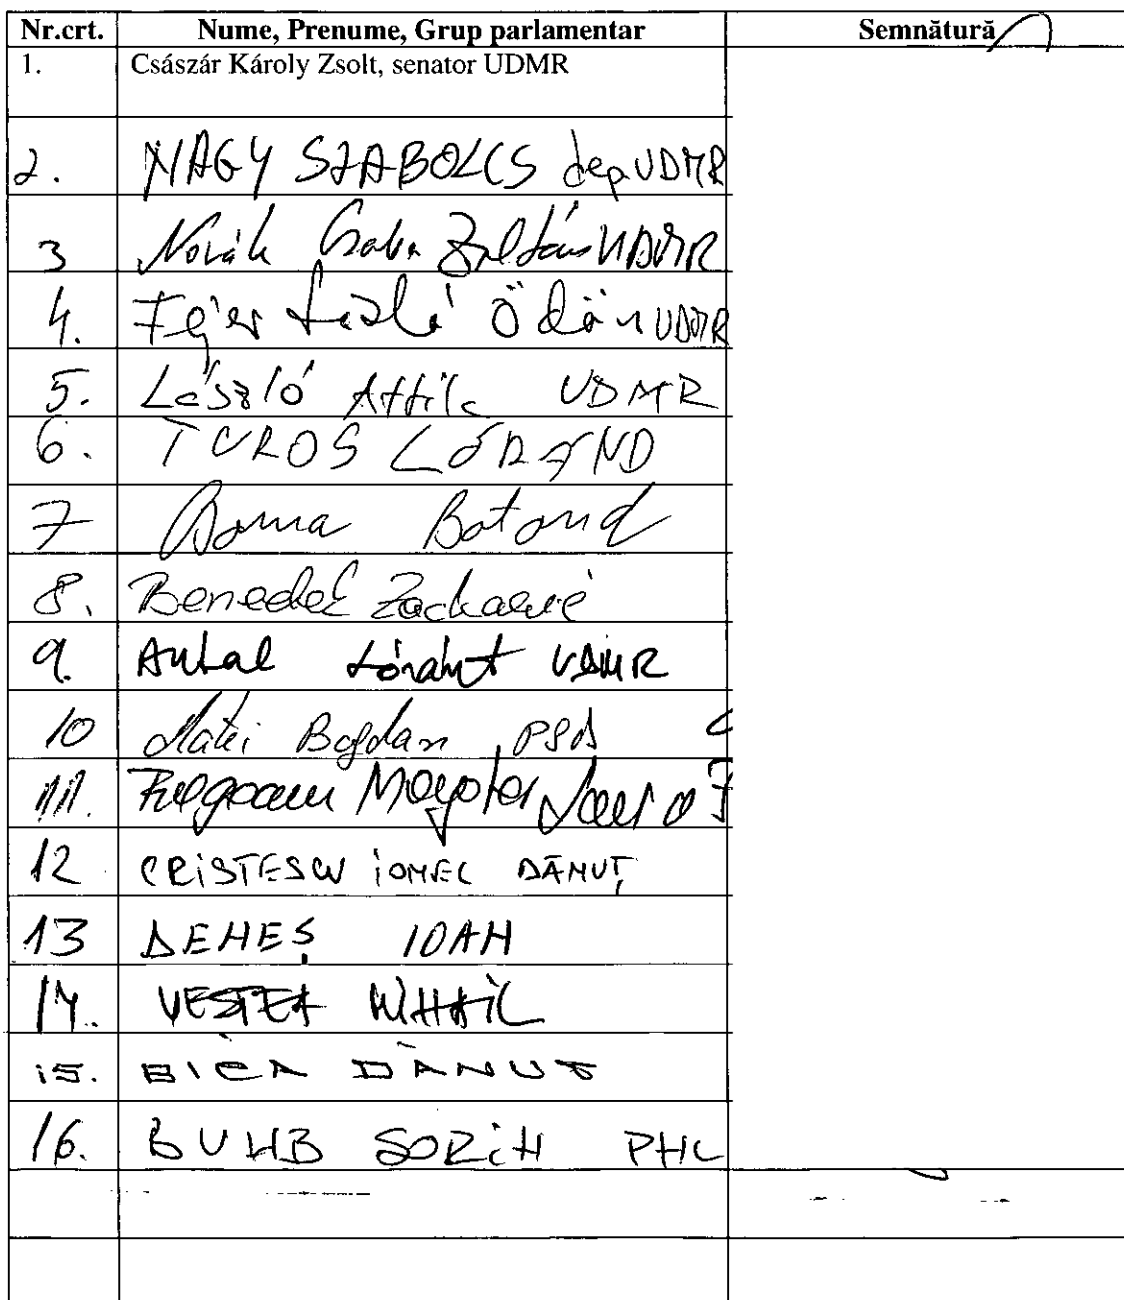 Nr.crt. Nume, Prenume, Grup parlamentar Semnătură
1. Császár Károly Zsolt, senator UDMR
2. NAGY SZABOLCS dep UDMR
3 Novák Csaba Zoltán UDMR
4. Fejér László Ödön UDMR
5. László Attila UDMR
6. TUROS LÓRÁND
7 Botond
8. Benedek Zacharie
9. Antal Lóránt UDMR
10 Matei Bogdan PSD
11.
12 CRISTESCU IONEL DĂNUȚ
13 DENEȘ IOAN
14. VESTEA MIHAIL
15. BICA DĂNUȚ
16. BUMB SORIN PNL